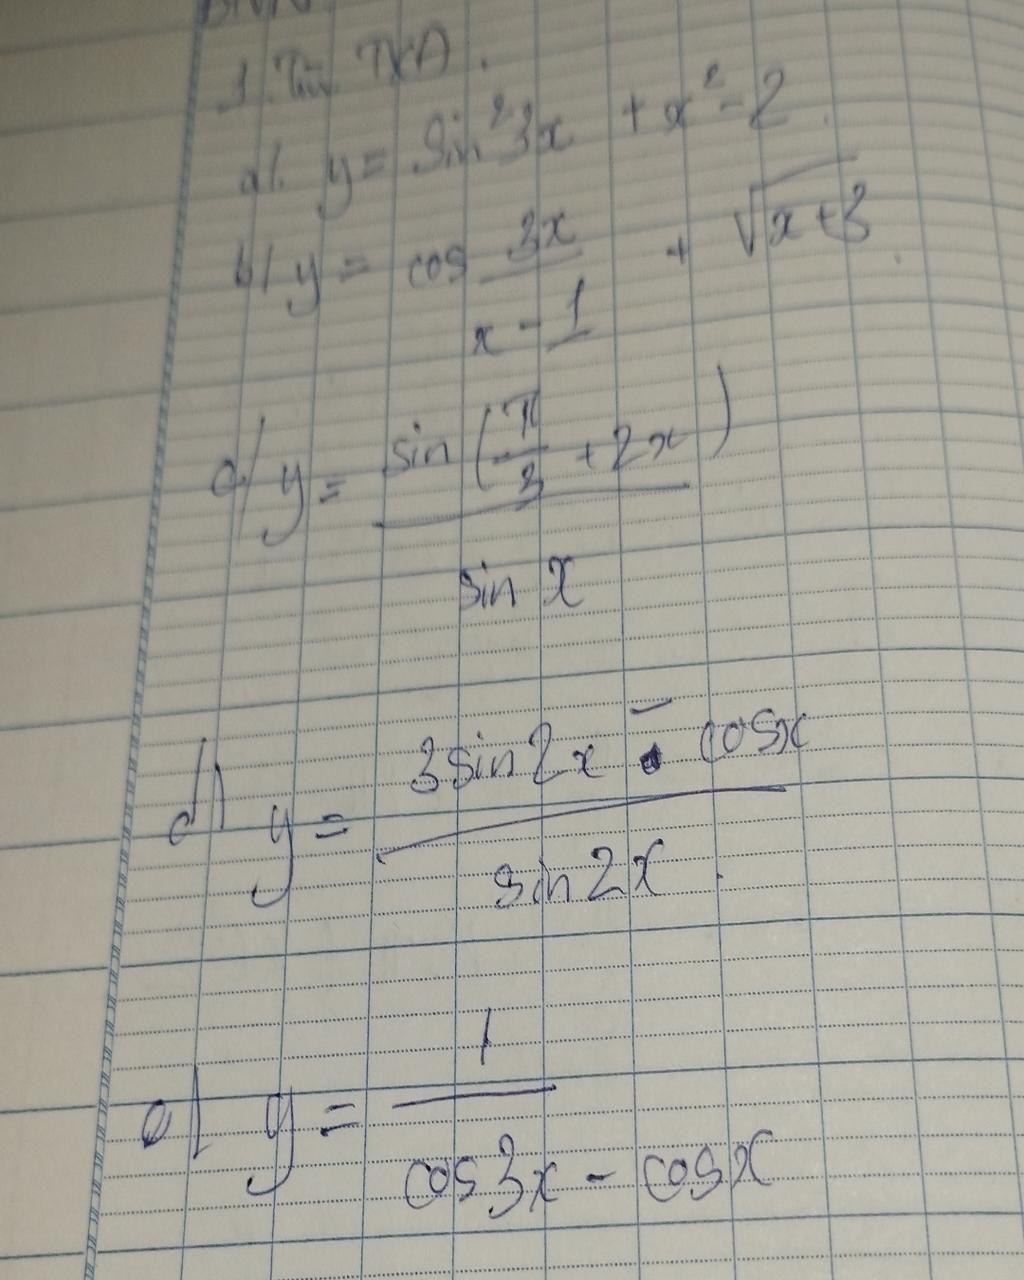 1. Tìm TXĐ.
a/. y = sin²3x + x² - 2.
b/ y = cos 3x/(x - 1) + √(x+3).
c/ y = sin(π/3 + 2x)/sin x
d/ y = (3sin2x - cosx)/sin2x.
e/ y = 1/(cos3x - cosx)